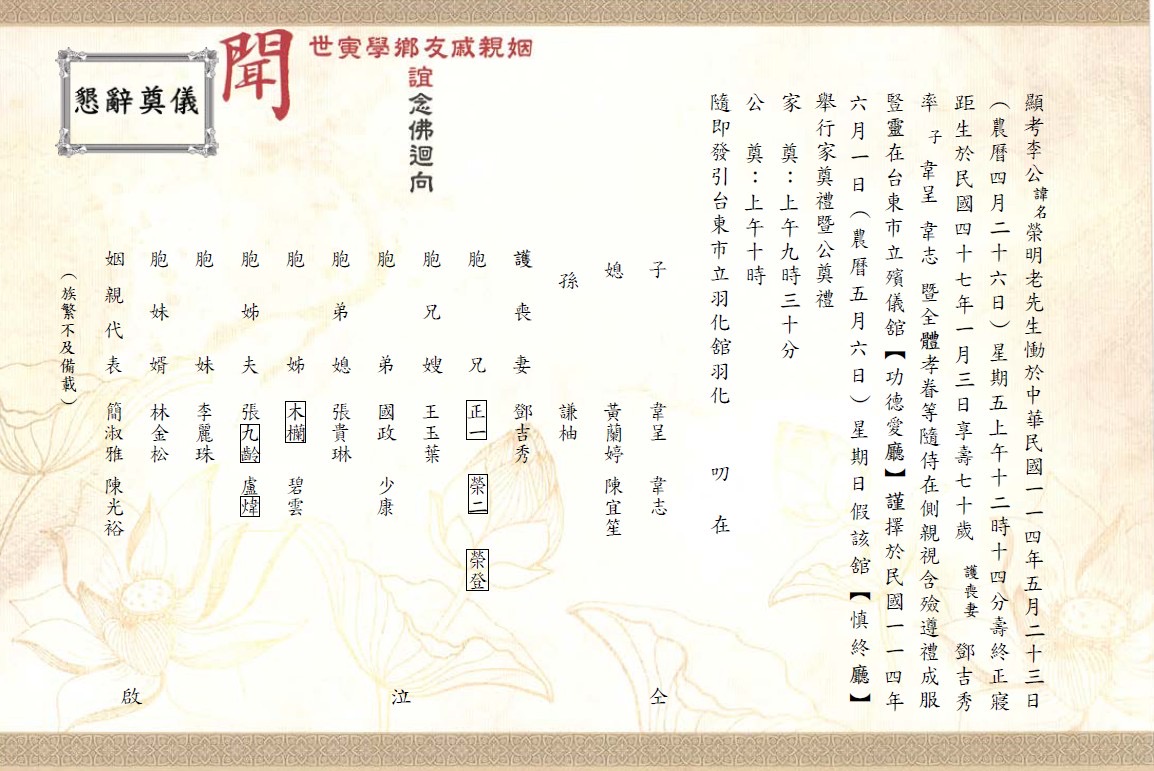 顯考李公諱名榮明老先生慟於中華民國一一四年五月二十三日
（農曆四月二十六日）星期五上午十二時十四分壽終正寢
距生於民國四十七年一月三日享壽七十歲 護喪妻 鄧吉秀
率 子 韋呈 韋志 暨全體孝眷等隨侍在側親視含殮遵禮成服
豎靈在台東市立殯儀舘【功德愛廳】謹擇於民國一一四年
六月一日（農曆五月六日）星期日假該舘【慎終廳】
舉行家奠禮暨公奠禮
家 奠：上午九時三十分
公 奠：上午十時
隨即發引台東市立羽化舘羽化 叨 在
姻親戚友鄉學寅世
誼
聞
念佛迴向
懇辭奠儀
子 韋呈 韋志 仝
媳 黃蘭婷 陳宜笙
孫 謙柚
護喪妻 鄧吉秀
胞兄 正一 榮二 榮登
胞兄嫂 王玉葉
胞弟 國政 少康 泣
胞弟媳 張貴琳
胞姊 木欄 碧雲
胞姊夫 張九齡 盧煒
胞妹 李麗珠
胞妹婿 林金松
姻親代表 簡淑雅 陳光裕 啟
（族繁不及備載）